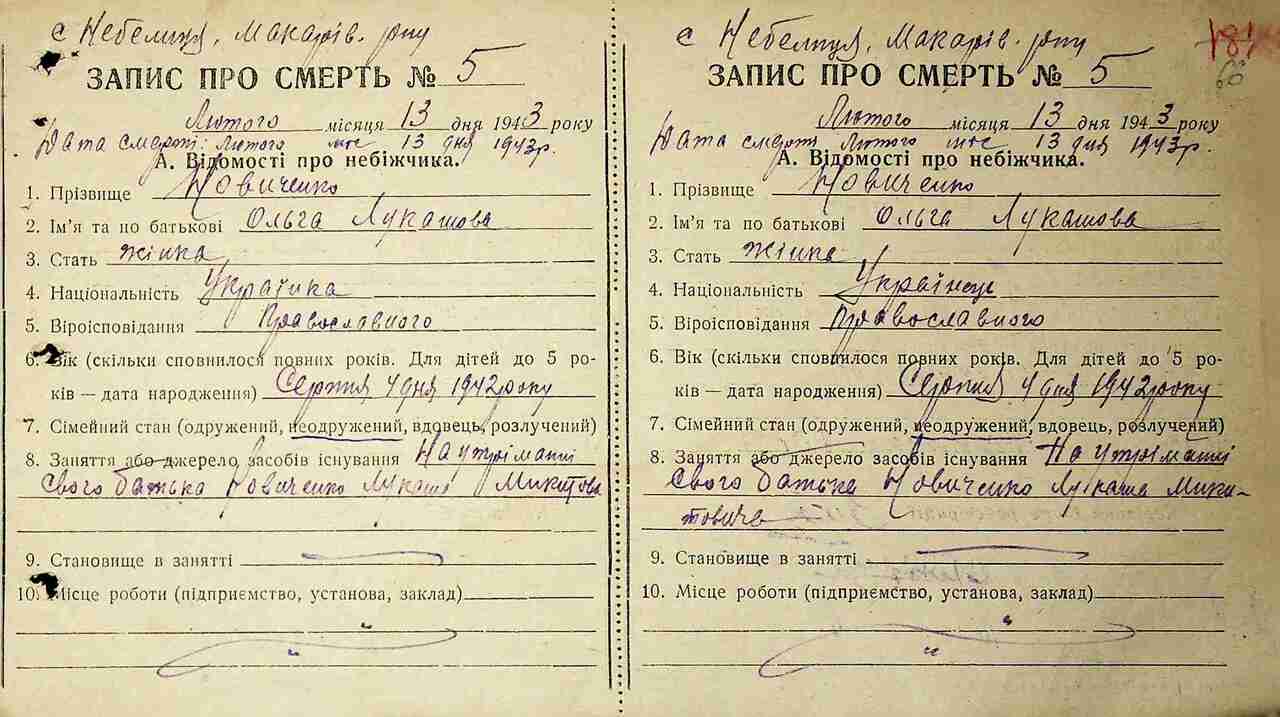 с Небелиця, Макарів. р-ну
ЗАПИС ПРО СМЕРТЬ № 5
Лютого місяця 13 дня 1943 року
Дата смерті: Лютого м-ця 13 дня 1943 р.
А. Відомості про небіжчика.
1. Прізвище Новиченко
2. Ім'я та по батькові Ольга Лукашова
3. Стать жінка
4. Національність Українка
5. Віроісповідання Православного
6. Вік (скільки сповнилося повних років. Для дітей до 5 ро-
ків — дата народження) Серпня 4 дня 1942 року
7. Сімейний стан (одружений, неодружений, вдовець, розлучений)
8. Заняття або джерело засобів існування На утріманні
свого батька Новиченко Лукаша Микитова
9. Становище в занятті
10. Місце роботи (підприємство, установа, заклад)
"
"
с Небелиця, Макарів. р-ну
ЗАПИС ПРО СМЕРТЬ № 5
Лютого місяця 13 дня 1943 року
Дата смерті Лютого м-ця 13 дня 1943 р.
А. Відомості про небіжчика.
1. Прізвище Новиченко
2. Ім'я та по батькові Ольга Лукашова
3. Стать жінка
4. Національність Українец
5. Віроісповідання Православного
6. Вік (скільки сповнилося повних років. Для дітей до 5 ро-
ків — дата народження) Серпня 4 дня 1942 року
7. Сімейний стан (одружений, неодружений, вдовець, розлучений)
8. Заняття або джерело засобів існування На утріманні
свого батька Новиченко Лукаша Мики-
товича
9. Становище в занятті
10. Місце роботи (підприємство, установа, заклад)
"
"